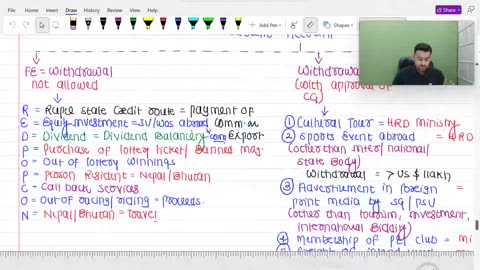 File Home Insert Draw View Help Editing
Add Pen
FE = Withdrawal
not allowed
R = Rupee State Credit route = payment of
E = Equity investment = JV/WOS abroad comm. on
D = Dividend = Dividend Balancing Export
P = Purchase of lottery ticket / Banned mag.
O = Out of lottery winnings
P = Person Resident = Nepal/Bhutan
C = Call back services
O = Out of racing/riding = proceeds.
N = Nepal/Bhutan = Travel
Withdrawal
(with approval of
CG)
① Cultural Tour = HRD ministry
② Sports Event abroad = HRD
(other than inter/national/
state Body)
Withdrawal = > US $ 1 lakh
③ Advertisement in foreign =
print media by SG / PSU
(other than tourism, investment,
International Bidding)
④ Membership of P&I club = mi